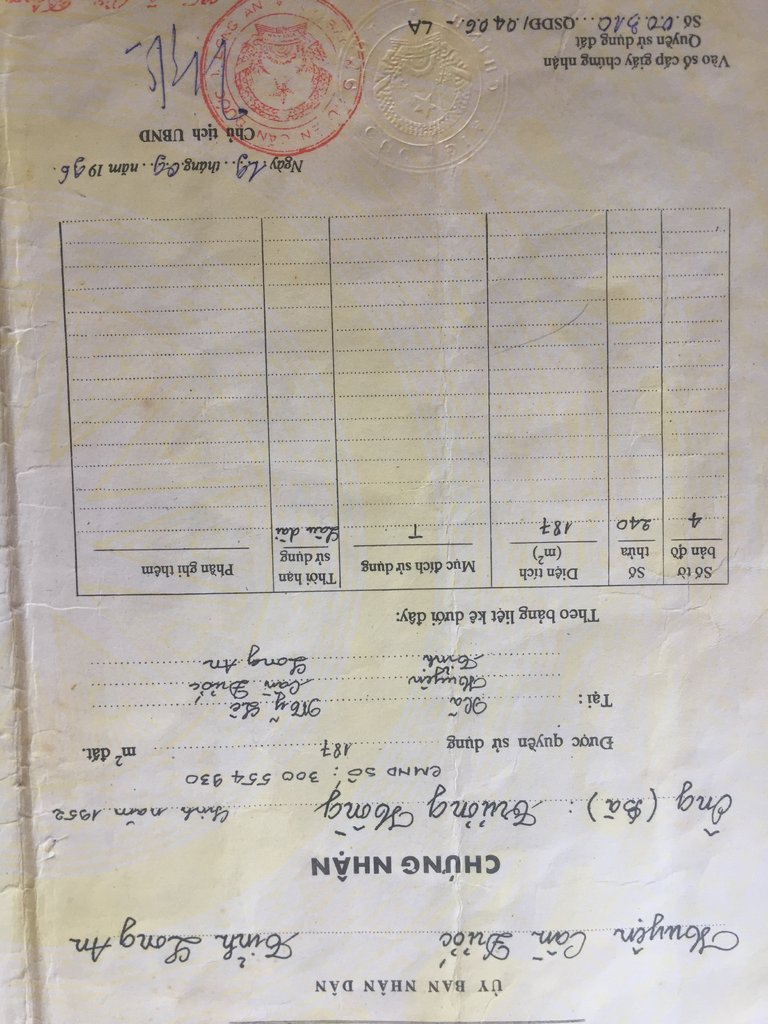 ỦY BAN NHÂN DÂN
Huyện Cần Đước Tỉnh Long An
CHỨNG NHẬN
Ông (Bà): Trương Hồng Sinh năm 1952
CMND số: 300 554 930
Được quyền sử dụng 187 m² đất.
Tại: Xã Mỹ Lệ
Huyện Cần Đước
Tỉnh Long An
Theo bảng liệt kê dưới đây:
Số tờ bản đồ Số thửa Diện tích (m²) Mục đích sử dụng Thời hạn sử dụng Phần ghi thêm
4 240 187 T Lâu dài
Ngày 19 tháng 09 năm 1996.
Chủ tịch UBND
Vào sổ cấp giấy chứng nhận
Quyền sử dụng đất
Số 00310 QSDĐ/0406 - LA